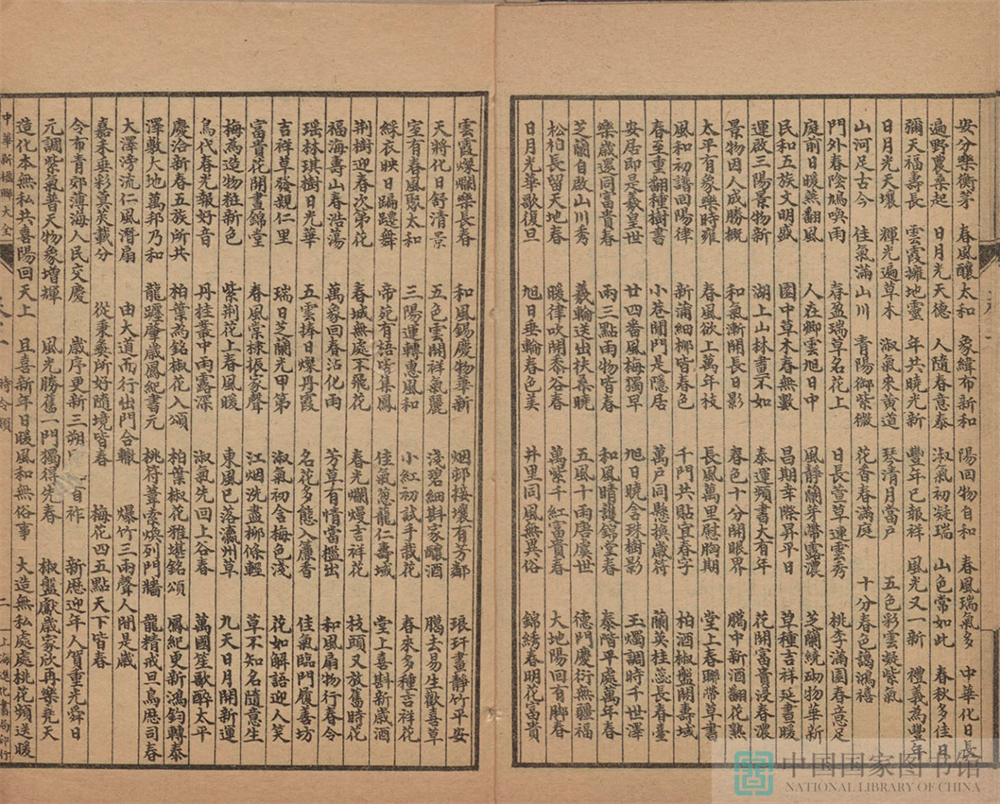 安分樂衡茅 春風釀太和 象緯布新和 陽回物自和 春風瑞氣多 中華化日長
遍野農桑起 日月光天德 人隨春意泰 淑氣初凝瑞 山色常如此 春秋多佳日
彌天福壽長 雲霞擁地靈 年共曉光新 豐年已報祥 風光又一新 禮義為豐年
日月光天壤 輝光遍草木 淑氣來黃道 琴清月當户 五色彩雲凝紫氣
山河足古今 佳氣滿山川 青陽御紫微 花香春滿庭 十分春色靄鴻禧
門外春陰鳩喚雨 春盈瑞草名花上 日長萱草連雲秀 桃李滿園春意足
庭前日暖燕翻風 人在卿雲旭日中 風靜蘭芽帶露濃 芝蘭繞砌物華新
民和五族文明盛 園中草木春無數 昌期幸際昇平日 草種吉祥延晝暖
運啟三陽景物新 湖上山林畫不如 泰運頻書大有年 花開富貴浸春濃
景物因人成勝概 和氣漸開長日影 春色十分開眼界 臘中新酒翻花熟
太平有象樂時雍 春風欲上萬年枝 長風萬里慰胸期 堂上春聯帶草書
風和初譜回陽律 新蒲細柳皆春色 千門共貼宜春字 柏酒椒盤開壽域
春至重翻種樹書 小巷閒門是隱居 萬戶同懸換歲符 蘭英桂蕊長春臺
安居即是羲皇世 廿四番風梅獨早 旭日曉含珠樹影 玉燭調時千世澤
樂歲還同富貴春 兩三點雨物皆春 和風晴靄錦堂春 泰階平處萬年春
芝蘭自啟山川秀 羲輪送出扶桑曉 五風十雨唐虞世 德門慶衍無疆福
松柏長留天地春 暖律吹開黍谷春 萬紫千紅富貴春 大地陽回有腳春
日月光華歌復旦 旭日垂輪春色美 井里同風無異俗 錦綉春明花富貴
雲霞燦爛樂長春 和風錫慶物華新 烟邨接壤有芳鄰 琅玕畫靜竹平安
天將化日舒清景 五色雲開祥氣麗 淺碧細斟家釀酒 臘去易生歡喜草
室有春風聚太和 三陽運轉惠風和 小紅初試手栽花 春來多種吉祥花
綵衣映日蹁躚舞 帝苑有語皆集鳳 佳氣葱蘢仁壽域 堂上喜斟新歲酒
荆樹迎春次第花 春城無處不飛花 春光爛熳吉祥花 枝頭又放舊時花
福海壽山春浩蕩 萬象回春沾化雨 芳草有情當檻出 和風扇物行春令
瑶林琪樹日光華 五雲捧日燦丹霞 名花多態入簾香 佳氣臨門履善坊
吉祥草發親仁里 瑞日芝蘭光甲第 淑氣初含梅色淺 花如解語迎人笑
富貴花開晝錦堂 春風棠棣振家聲 江烟洗盡柳條輕 草不知名隨意生
梅為造物粧新色 紫荆花上春風暖 東風已落瀛洲草 九天日月開新運
鳥代春光報好音 丹桂叢中雨露深 淑氣先回上谷春 萬國笙歌醉太平
慶洽新春五族所共 柏葉為銘椒花入頌 柏葉椒花雅堪銘頌 鳳紀更新鴻鈞轉泰
澤敷大地萬邦乃和 龍躔肇歲鳳紀書元 桃符葦索煥列門牆 龍精戒旦鳥歷司春
大澤滂流仁風潛扇 由大道而行出門合轍 爆竹三兩聲人間是歲
嘉禾垂彩蓂莢載分 從秉彝所好隨境皆春 梅花四五點天下皆春
令布青郊薄海人民交慶 歲序更新三朔 首祚 新歷迎年人賀重光舜日
元調紫氣普天物象增輝 風光勝舊一門獨得先春 椒盤獻歲家欣再樂堯天
造化本無私共喜陽回天上 且喜新年日暖風和無俗事 大造無私處處桃花頻送暖
中華新楹聯大全 時令類 二 上海進化書局印行
中国国家图书馆
NATIONAL LIBRARY OF CHINA